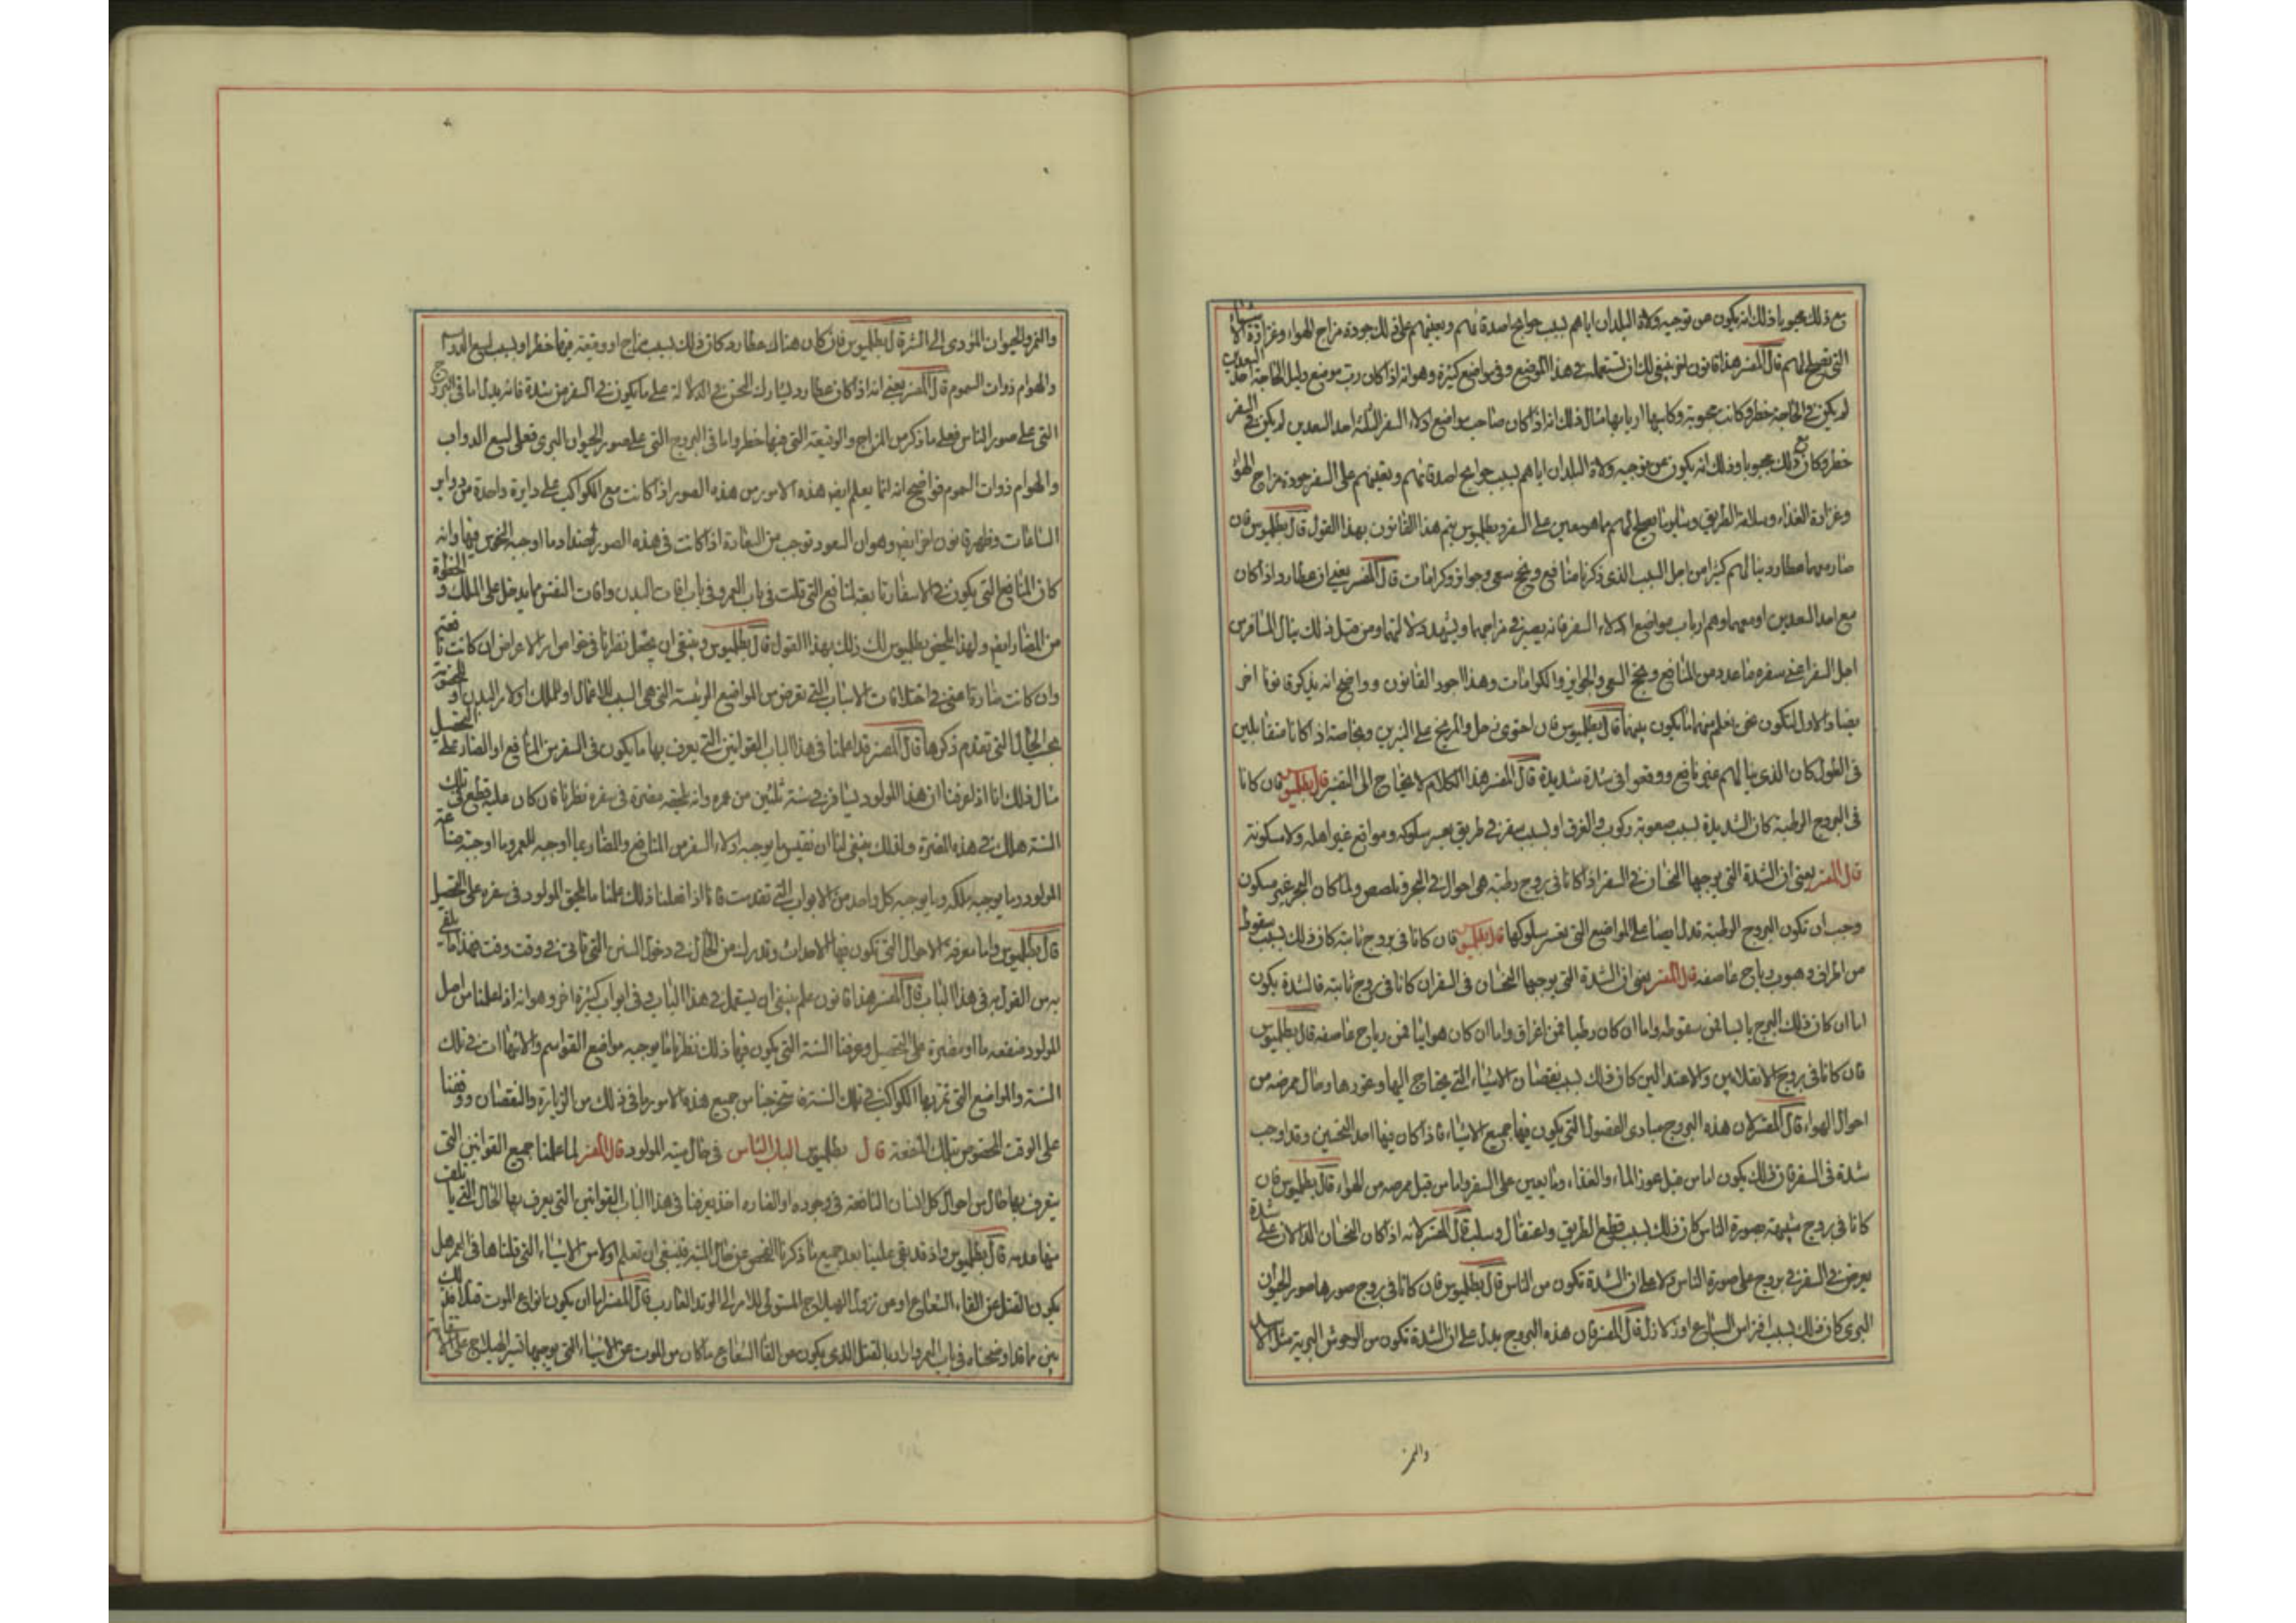 مع ذلك محبوبا وذلك انه يكون من توجيه ولاة البلدان اياهم لسبب حوائج اصدقائهم ويعينهم على ذلك جودة مزاج الهواء وغزارة الاشياء
التي تصلح لهم قال المفسر هذا قانون اخر ينبغي لك ان تستعمله في هذا الموضع وفي مواضع كثيرة وهو انه اذا كان رب موضع دليل الحاجة احد السعدين
لم يكن في الحاجة خطر وكانت محبوبة وكاسبها اربابها مثال ذلك انه اذا كان صاحب مواضع ادلاء السفر الثلثة احد السعدين لم يكن في السفر
خطر وكان مع ذلك محبوبا وذلك انه يكون عن توجيه ولاة البلدان اياهم لسبب حوايج اصدقائهم ويعينهم على السفر جودة مزاج الهواء
وغزارة الغذاء وسلامة الطريق وساير ما يصلح لهم مما هو معين على السفر وبطلميوس يتم هذا القانون بهذا القول قال بطلميوس فان
صار معهما عطارد ينالهم كثيرا من اجل السبب الذي ذكرنا منافع ونجح سعي وجوائز وكرامات قال المفسر يعني ان عطارد اذا كان
مع احد السعدين او معهما وهم ارباب مواضع ادلاء السفر فانه يصير في مزاجهما ويشهد دلالتهما ومن قبل ذلك ينال المسافر من
اجل السفر اعني سفره ما عدد من المنافع ونجح السعي والجوايز والكرامات وهذا اجود القانون وواضح انه يذكر قانونا اخر
مضادا للاول لتكون نحن نعلم منهما ما يكون بينهما قال بطلميوس فان احتوى زحل والمريخ على النيرين وبخاصة اذا كانا متقابلين
في الطول كان الذي ينالهم غير نافع ووقعوا في شدة شديدة قال المفسر هذا الكلام لا يحتاج الى التفسير قال بطلميوس فان كانا
في البروج الرطبة كان الشديدة لسبب صعوبة ركوب والغرق او لسبب سفر في طريق يعسر سلوكه ومواضع غير اهله ولا مسكونة
قال المفسر يعني ان الشدة التي يوجبها النحسان في السفر اذا كانا في بروج رطبة هي احوال في البحر وتلصص ولما كان البحر غير مسكون
وجب ان تكون البروج الرطبة تدل ايضا على المواضع التي يعسر سلوكها قال بطلميوس فان كانا في بروج ثابتة كان ذلك لسبب سقوط
من المراقى وهبوب رياح عاصفه قال المفسر يعني ان الشدة التي يوجبها النحسان في السفر ان كانا في بروج ثابته فالشدة يكون
اما ان كان ذلك البرج يابسا فمن سقوطه واما ان كان رطبا فمن اغراق واما ان كان هوائيا فمن رياح عاصفه قال بطلميوس
فان كانا في بروج الانقلابين والاعتدالين كان ذلك لسبب نقصان الاشياء التي يحتاج اليها وعوزها وحال ممرضه من
احوال الهواء قال المفسر لان هذه البروج مبادى الفصول التي يكون فيها جميع الاشياء فاذا كان فيها احد النحسين وقد اوجب
شدة في السفر فان ذلك يكون اما من قبل عوز الماء والغذاء وما يعين على السفر واما من قبل ممرضه من الهواء قال بطلميوس فان
كانا في بروج شبيهة بصورة الناس كان ذلك لسبب قطع الطريق واعتقال وسلب قال المفسر لانه اذا كان النحسان الدالان على شدة
يعرض في السفر في بروج على صورة الناس دلا على ان الشدة تكون من الناس قال بطلميوس فان كانا في بروج صورها صور الحيوان
البري كان ذلك لسبب افتراس السباع او زلازل قال المفسر فان هذه البروج يدل على ان الشدة تكون من الوحوش البرية مثل الاسد
والنمر
والنمر والحيوان المؤدي الى الشر قال بطلميوس فان كان هناك عطارد كان ذلك لسبب مزاج او وقيعة فيها خطر او لسبب لسع الدواب
والهوام ذوات السموم قال المفسر يعني انه اذا كان عطارد يشارك النحس في الدلالة على ما يكون في السفر من شدة فانه يدل اما في البروج
التي على صور الناس فعلى ما ذكر من المزاج والوقيعة التي فيها خطر واما في البروج التي على صور الحيوان البري فعلى لسع الدواب
والهوام ذوات السموم فواضح انه انما يعلم ايض هذه الامور من هذه الصور اذا كانت مع الكواكب على دايرة واحدة من دواير
الساعات وظهر قانون اخر ايض وهو ان السعود توجب من السعادة اذا كانت في هذه الصور ضد ما اوجبه النحوس فيها وانه
كان المنافع التي يكون في الاسفار تابعة لمنافع التي قلت في باب العمر وفي باب افات البدن وافات النفس مما يدخل على الملك والحظوة
من المضار ايض ولهذا يلخص بطلميوس لك ذلك بهذا القول قال بطلميوس وينبغي ان يجعل نظرنا في خواص الاعراض ان كانت نافعة
وان كانت ضارة اعني في اختلافات الاسباب التي تعرض من المواضع الرئيسة التي هي السبب للاعمال او للملك او لامر البدن او الحظوة
بحسب الحال التي تقدم ذكرها قال المفسر قد اعلمنا في هذا الباب القوانين التي يعرف بها ما يكون في السفر من المنافع او المضار على التحصيل
مثال ذلك انا اذا عرفنا ان هذا المولود يسافر في سنة ثلثين من عمره وانه يلحقه مضرة في سفره نظرنا فان كان عليه قطع في تلك
السنة هلك في هذه المضرة ولذلك ينبغي لنا ان نقيس ما يوجبه ادلاء السفر من المنافع والمضار بما اوجبه العمر وما اوجبته صناعة
المولود وما يوجبه ملكه وما يوجبه كل واحد من الابواب التي تقدمت فانا اذا فعلنا ذلك علمنا ما يلحق المولود في سفره على التحصيل
قال بطلميوس واما معرفة الاحوال التي تكون فيها الاحداث وتدرك من الحال في دخول السنين التي تاتي في وقت وقت فهذا ما يلغى
به من القول به في هذا الباب قال المفسر هذا قانون علم ينبغي ان يستعمل في هذا الباب وفي ابواب كثيرة اخر وهو انه اذا علمنا من اصل
المولود منفعة ما او مضرة على التحصيل وعرفنا السنة التي يكون فيها ذلك نظرنا ما يوجبه مواضع القواسم والانتهاات في تلك
السنة والمواضع التي تمر بها الكواكب في تلك السنة فاستخرجنا من جميع هذه الامور ما في ذلك من الزيادة والنقصان ووقفنا
على الوقت المخصوص بتلك المنفعة قال بطلميوس الباب الثامن في حال ميتة المولود قال المفسر لما علمنا جميع القوانين التي
يعرف بها حال من احوال كل انسان النافعة في وجوده او الضارة اخذ يعرفنا في هذا الباب القوانين التي يعرف بها الحال التي يتلف
منها عدمه قال بطلميوس واذ قد بقي علينا بعد جميع ما ذكرنا الفحص عن حال الميتة فينبغي ان تعلم اولا من الاشياء التي قلناها في العمر هل
يكون القتل عن القاء الشعاع او من نزول الهيلاج المستولي للامر الى الوتد الغارب قال المفسر لما ان يكون انواع الموت قتلا
بين ما قد اوضحناه في باب العمر وارادنا القتل الذي يكون من القا الشعاع ما كان من الموت عن الاشياء التي يوجبها تسيير الهيلاج على